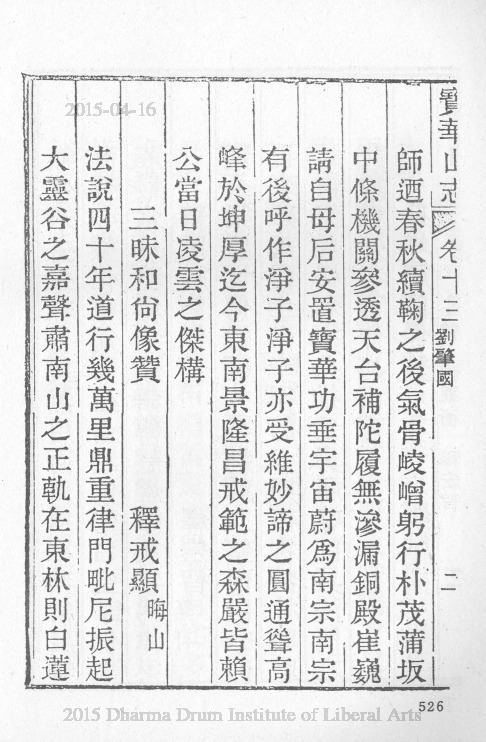 寶華山志 卷十三 劉肇國 二
師迺春秋續鞠之後氣骨崚嶒躬行朴茂蒲坂
中條機關參透天台補陀履無滲漏銅殿崔巍
請自母后安置寶華功垂宇宙蔚爲南宗南宗
有後呼作淨子淨子亦受維妙諦之圓通聳高
峰於坤厚迄今東南景隆昌戒範之森嚴皆賴
公當日凌雲之傑構
三昧和尙像贊 釋戒顯 晦山
法說四十年道行幾萬里鼎重律門毗尼振起
大靈谷之嘉聲肅南山之正軌在東林則白蓮
526
2015-04-16
2015 Dharma Drum Institute of Liberal Arts